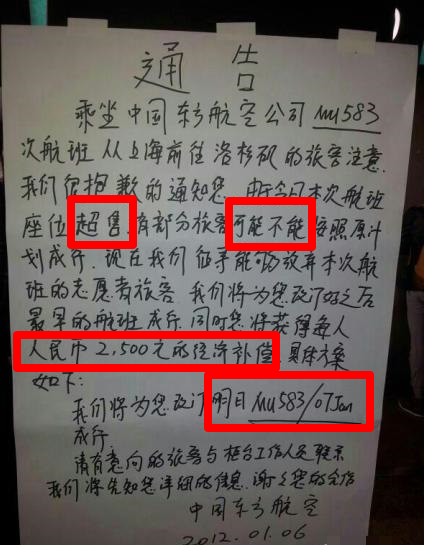 通告
乘坐中国东方航空公司 MU583
次航班从上海前往洛杉矶的旅客注意
我们很抱歉的通知您,由于今日本次航班
座位超售,有部分旅客可能不能按照原计
划成行.现在我们征求能够放弃本次航
班的志愿者旅客.我们将为您改订好之后
最早的航班成行.同时您将获得每人
人民币2,500元的经济补偿,具体方案
如下:
我们将为您改订明日 MU583/07Jan
成行.
请有意向的旅客与柜台工作人员联系
我们将告知您详细的信息.谢谢您的合作
中国东方航空
2012.01.06